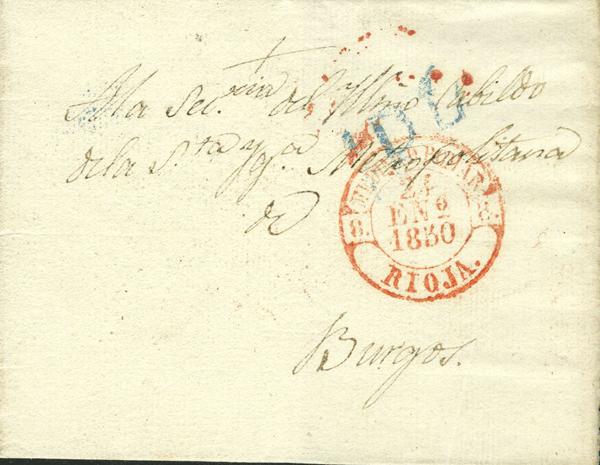 A la Sec.ria del Illmo Cabildo
de la S.ta yg.a Metropolitana
de
Burgos.
8.
8.
ENº
1850
RIOJA.